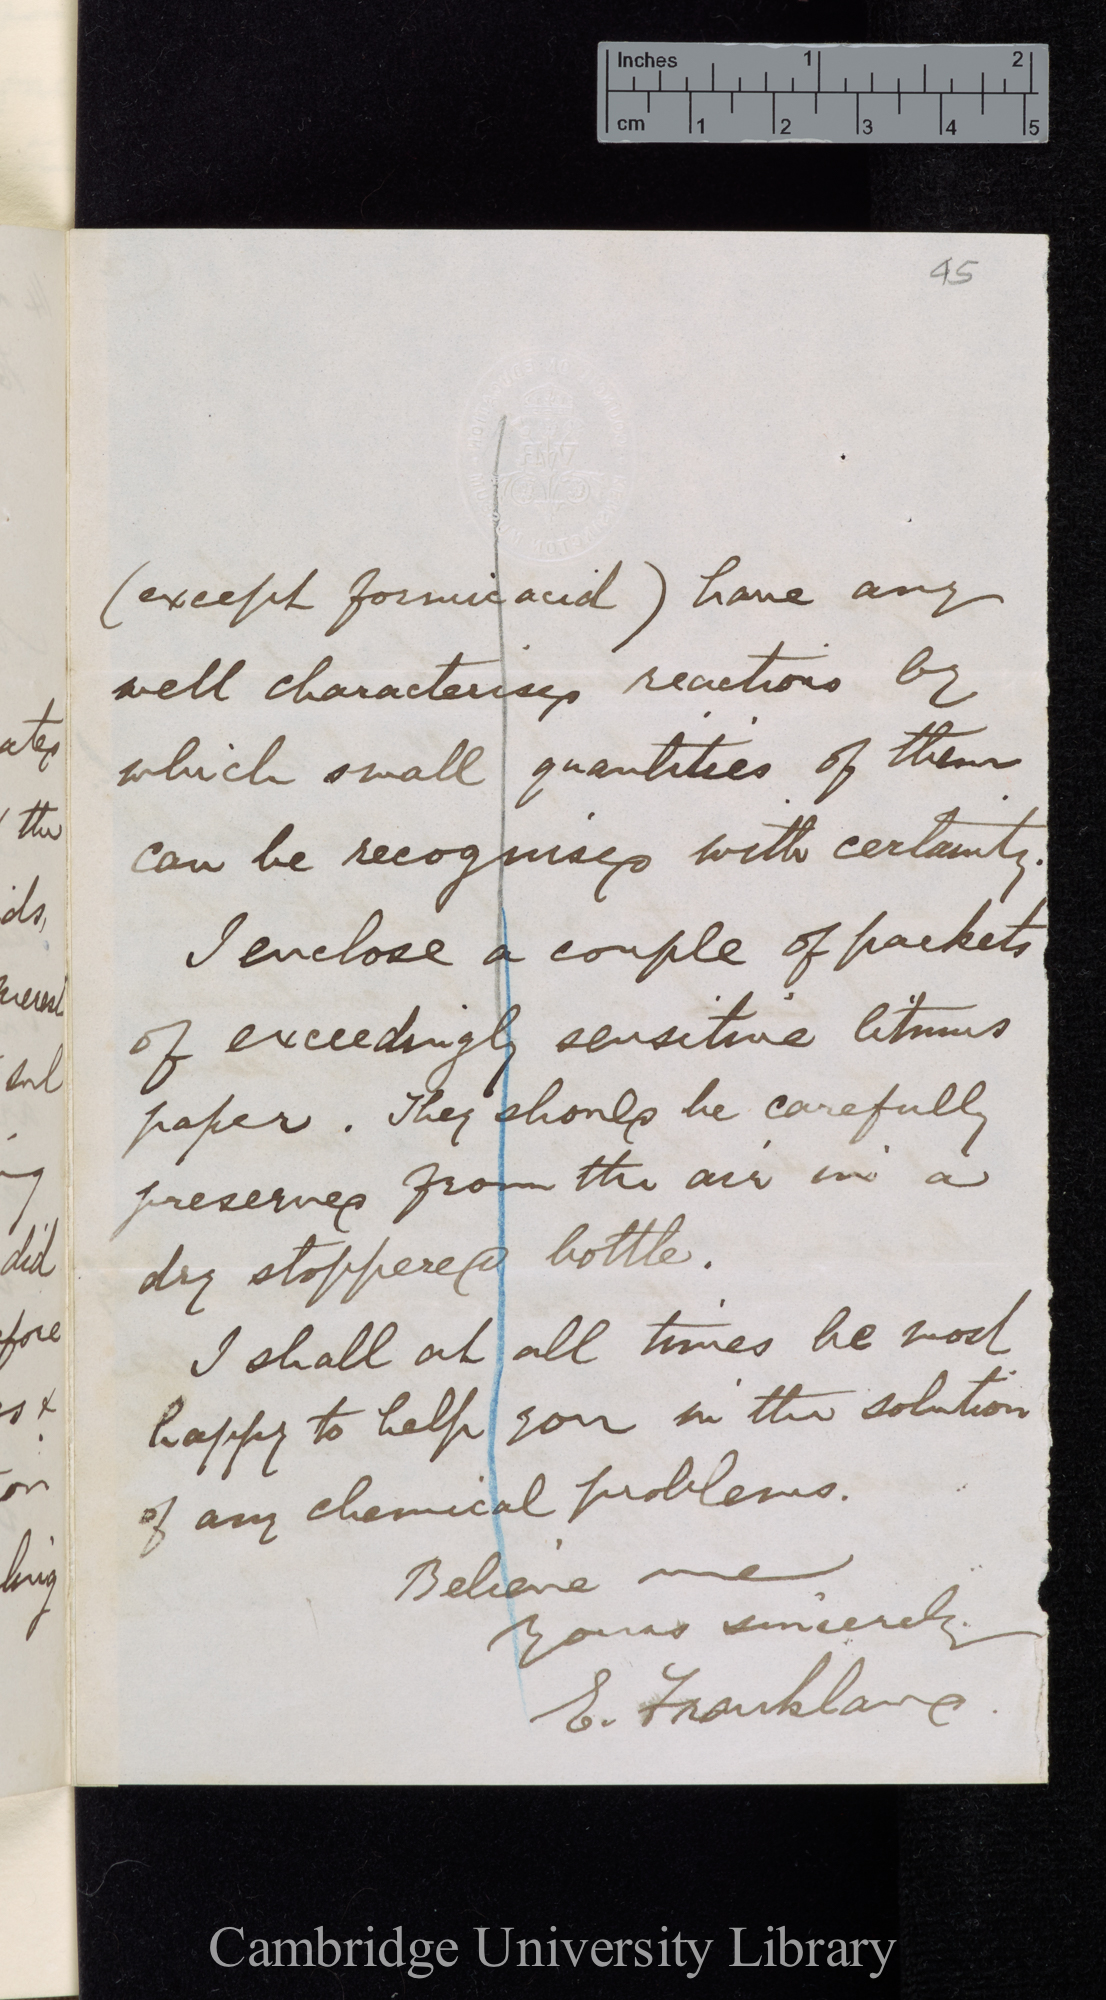 Inches 1 2
cm 1 2 3 4 5
45
(except formic acid) have any
well characterised reactions by
which small quantities of them
can be recognised with certainty.
I enclose a couple of packets
of exceedingly sensitive litmus
paper. They should be carefully
preserved from the air in a
dry stoppered bottle.
I shall at all times be most
happy to help you in the solution
of any chemical problems.
Believe me
Yours sincerely
E. Frankland.
the
ids,
did
Cambridge University Library